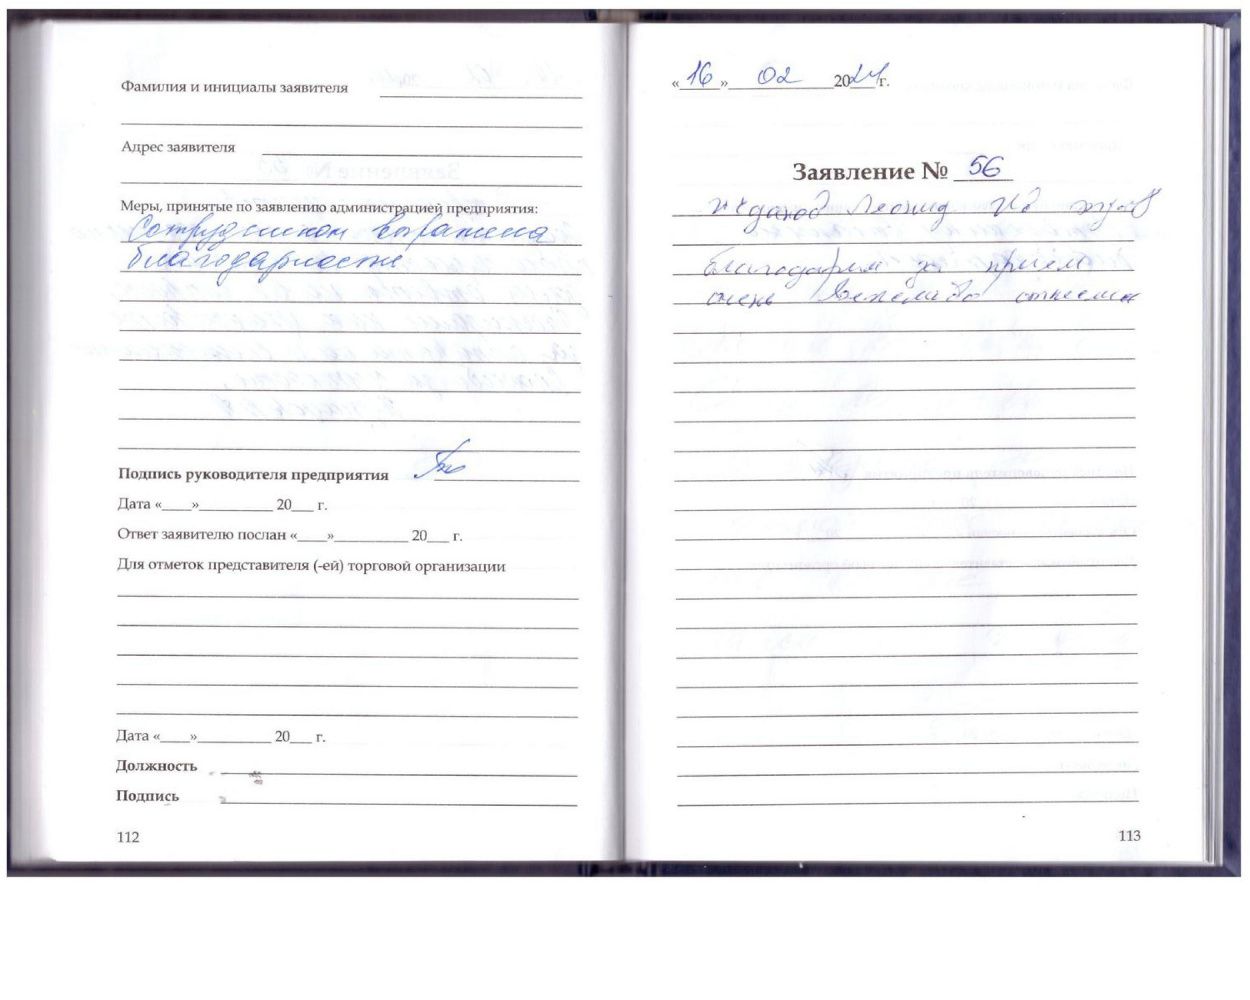 Фамилия и инициалы заявителя
Адрес заявителя
Меры, принятые по заявлению администрацией предприятия:
Сотрудникам выражена
благодарность
Подпись руководителя предприятия
Дата «____»__________ 20___ г.
Ответ заявителю послан «____»__________ 20___ г.
Для отметок представителя (-ей) торговой организации
Дата «____»__________ 20___ г.
Должность
Подпись
112
«16» 02 2024 г.
Заявление № 56
Леонид
благодарим за прием
очень вежливо
113